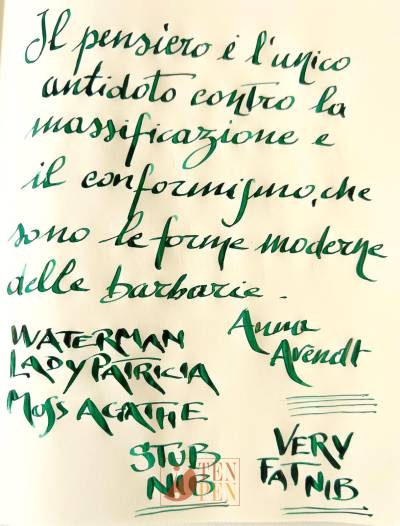 Il pensiero è l'unico
antidoto contro la
massificazione e
il conformismo, che
sono le forme moderne
delle barbarie.
Anna
Arendt
WATERMAN
LADY PATRICIA
MOSS AGATHE
STUB
NIB
VERY
FAT NIB.
TEN
PEN